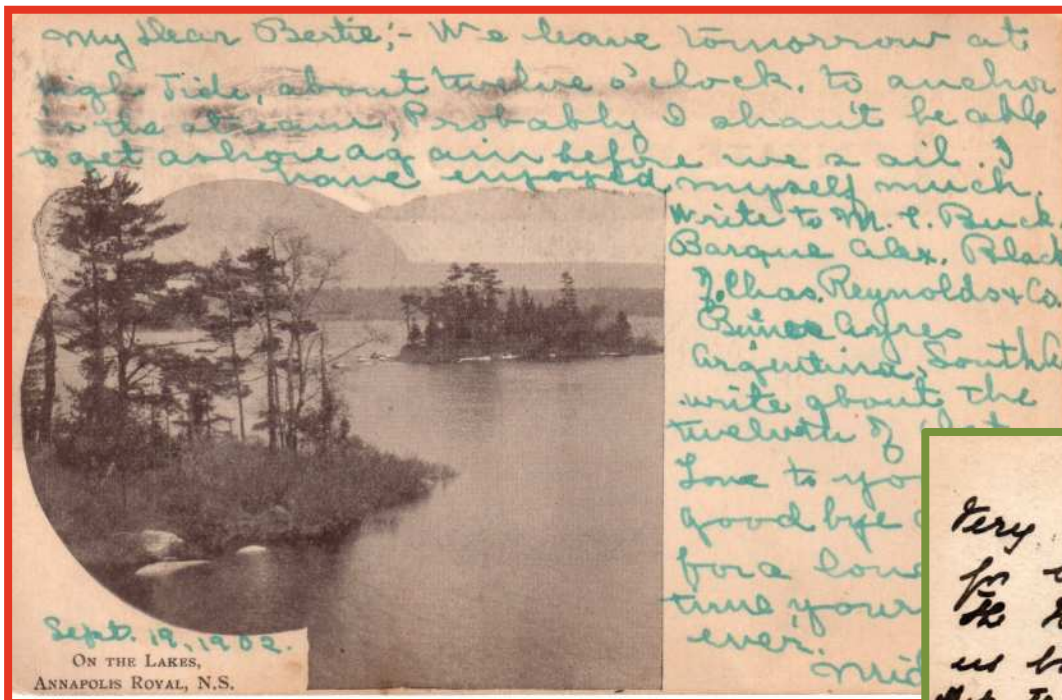 My Dear Bertie;- We leave tomorrow at
high Tide, about twelve o'clock, to anchor
in the stream, Probably I shan't be able
to get ashore again before we sail. I
have enjoyed myself much.
Write to M. C. Buck.
Barque Alex. Black
Chas. Reynolds + Co.
Ayres
Argentina, South
write about the
twelvth of
Love to yo
good bye
for a long
time yours
ever.
Mid
Sept. 19, 1902.
ON THE LAKES,
ANNAPOLIS ROYAL, N.S.
Very
for
the
us